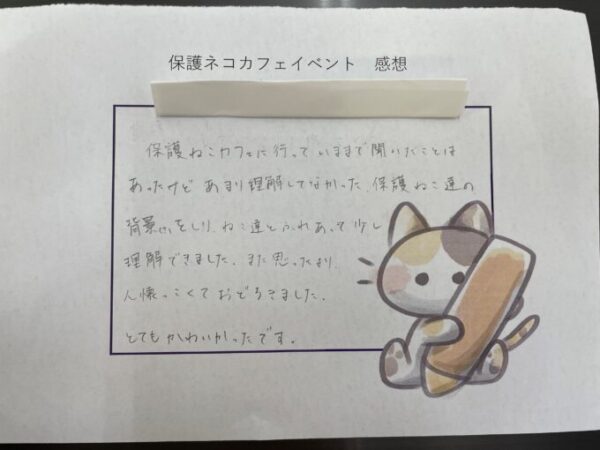 保護ネコカフェイベント 感想
保護ねこカフェに行っていままで聞いたことは
あったけど あまり理解してなかった、保護ねこ達の
背景をしり、ねこ達とふれあって少し
理解できました。また思ったより、
人懐っこくておどろきました。
とてもかわいかったです。